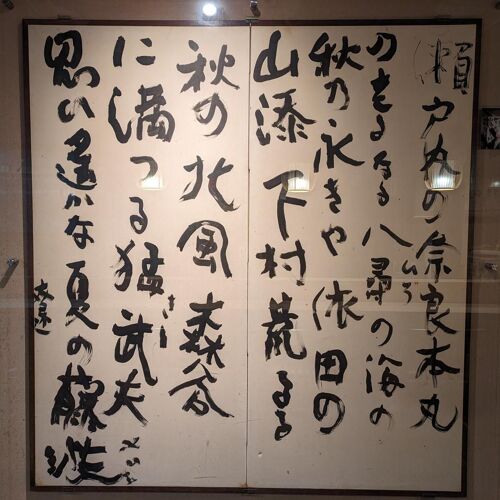 瀬戸丸の奈良本丸
のきるなる八尋の海の
ひろ
秋の永きや依田の
山添下村荒るる
秋の北風森谷
に満つる猛武夫
思い遥かな夏の藤